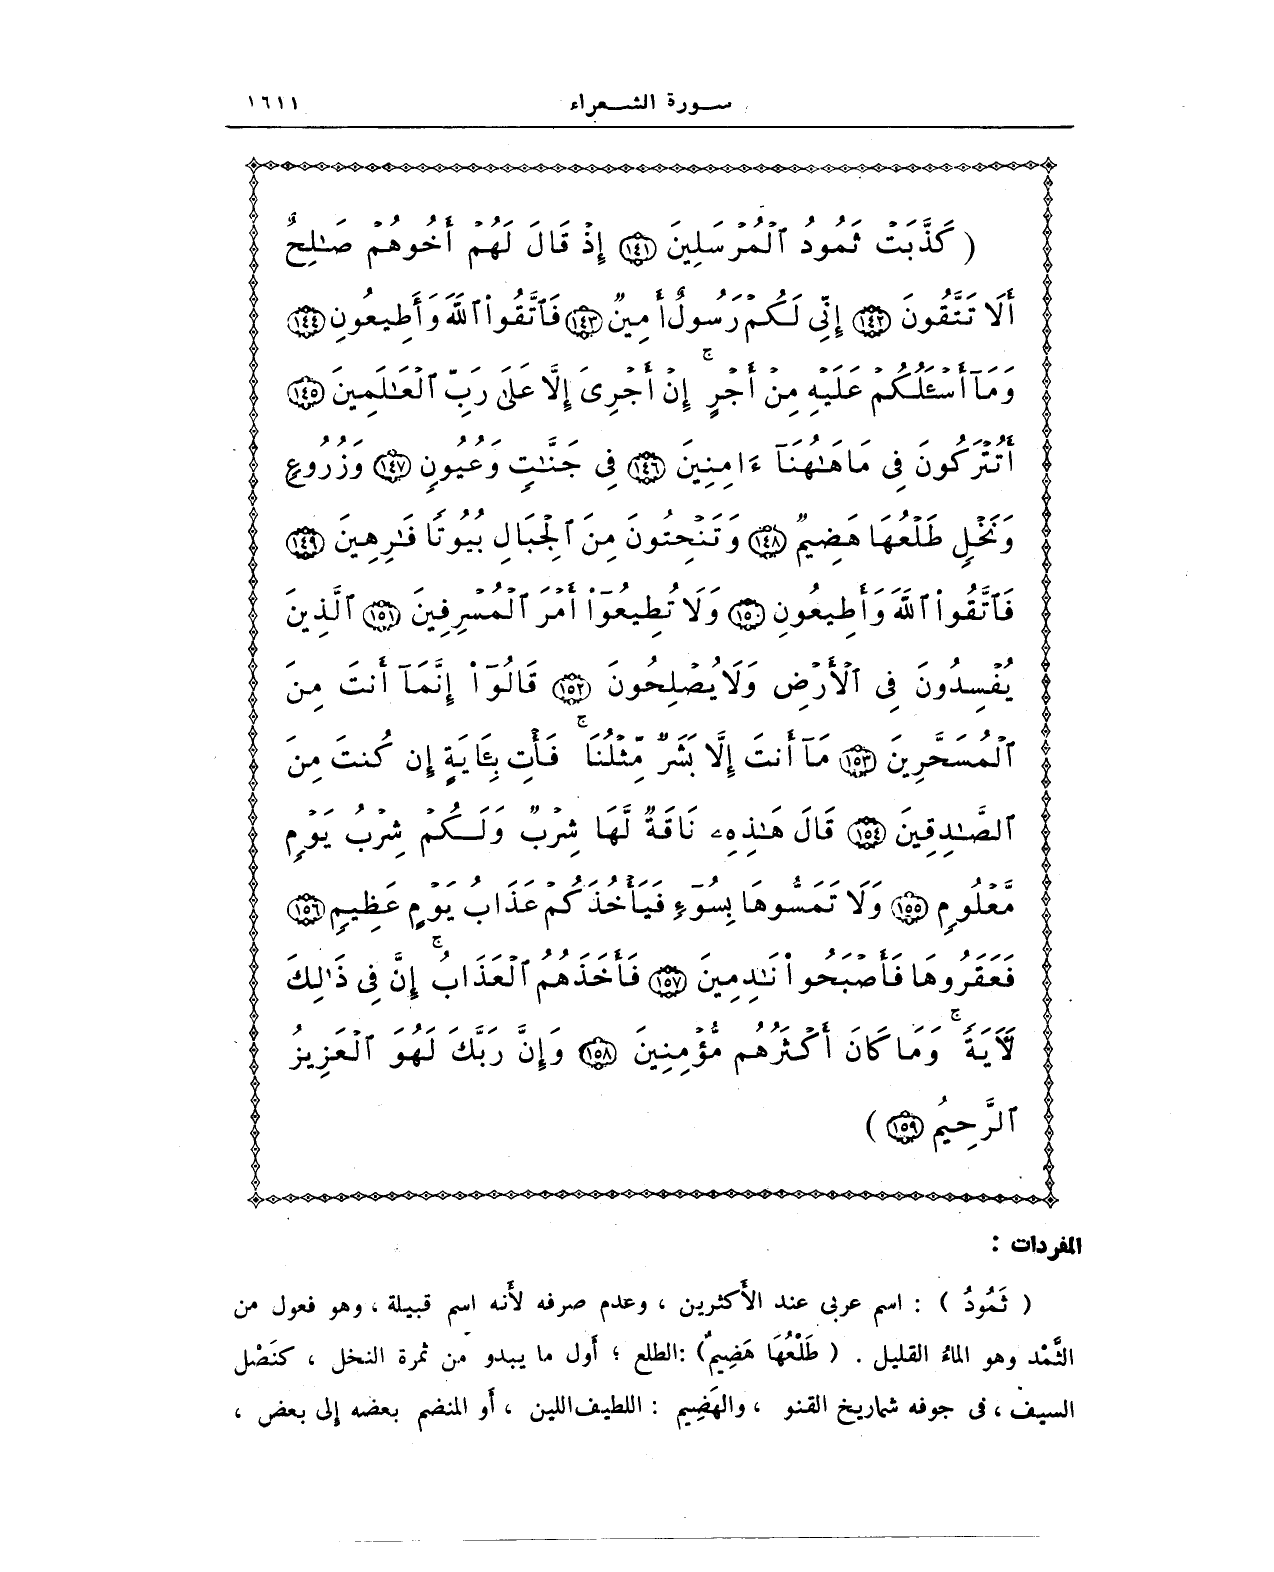 سورة الشعراء ١٦١١
( كَذَّبَتْ ثَمُودُ ٱلْمُرْسَلِينَ ١٤١ إِذْ قَالَ لَهُمْ أَخُوهُمْ صَـٰلِحٌ
أَلَا تَتَّقُونَ ١٤٢ إِنِّى لَكُمْ رَسُولٌ أَمِينٌ ١٤٣ فَٱتَّقُوا۟ ٱللَّهَ وَأَطِيعُونِ ١٤٤
وَمَآ أَسْـَٔلُكُمْ عَلَيْهِ مِنْ أَجْرٍ ۚ إِنْ أَجْرِىَ إِلَّا عَلَىٰ رَبِّ ٱلْعَـٰلَمِينَ ١٤٥
أَتُتْرَكُونَ فِى مَا هَـٰهُنَآ ءَامِنِينَ ١٤٦ فِى جَنَّـٰتٍ وَعُيُونٍ ١٤٧ وَزُرُوعٍ
وَنَخْلٍ طَلْعُهَا هَضِيمٌ ١٤٨ وَتَنْحِتُونَ مِنَ ٱلْجِبَالِ بُيُوتًا فَـٰرِهِينَ ١٤٩
فَٱتَّقُوا۟ ٱللَّهَ وَأَطِيعُونِ ١٥٠ وَلَا تُطِيعُوٓا۟ أَمْرَ ٱلْمُسْرِفِينَ ١٥١ ٱلَّذِينَ
يُفْسِدُونَ فِى ٱلْأَرْضِ وَلَا يُصْلِحُونَ ١٥٢ قَالُوٓا۟ إِنَّمَآ أَنتَ مِنَ
ٱلْمُسَحَّرِينَ ١٥٣ مَآ أَنتَ إِلَّا بَشَرٌ مِّثْلُنَا ۚ فَأْتِ بِـَٔايَةٍ إِن كُنتَ مِنَ
ٱلصَّـٰدِقِينَ ١٥٤ قَالَ هَـٰذِهِۦ نَاقَةٌ لَّهَا شِرْبٌ وَلَكُمْ شِرْبُ يَوْمٍ
مَّعْلُومٍ ١٥٥ وَلَا تَمَسُّوهَا بِسُوٓءٍ فَيَأْخُذَكُمْ عَذَابُ يَوْمٍ عَظِيمٍ ١٥٦
فَعَقَرُوهَا فَأَصْبَحُوا۟ نَـٰدِمِينَ ١٥٧ فَأَخَذَهُمُ ٱلْعَذَابُ ۚ إِنَّ فِى ذَٰلِكَ
لَـَٔايَةً ۚ وَمَا كَانَ أَكْثَرُهُم مُّؤْمِنِينَ ١٥٨ وَإِنَّ رَبَّكَ لَهُوَ ٱلْعَزِيزُ
ٱلرَّحِيمُ ١٥٩ )
المفردات :
( ثَمُودُ ) : اسم عربى عند الأكثرين ، وعدم صرفه لأنه اسم قبيلة ، وهو فعول من
الثَّمْد وهو الماءُ القليل . ( طَلْعُهَا هَضِيمٌ ) :الطلع ؛ أول ما يبدو من ثمرة النخل ، كنَصْل
السيف ، فى جوفه شماريخ القنو ، والهَضِيم : اللطيف اللين ، أو المنضم بعضه إلى بعض ،